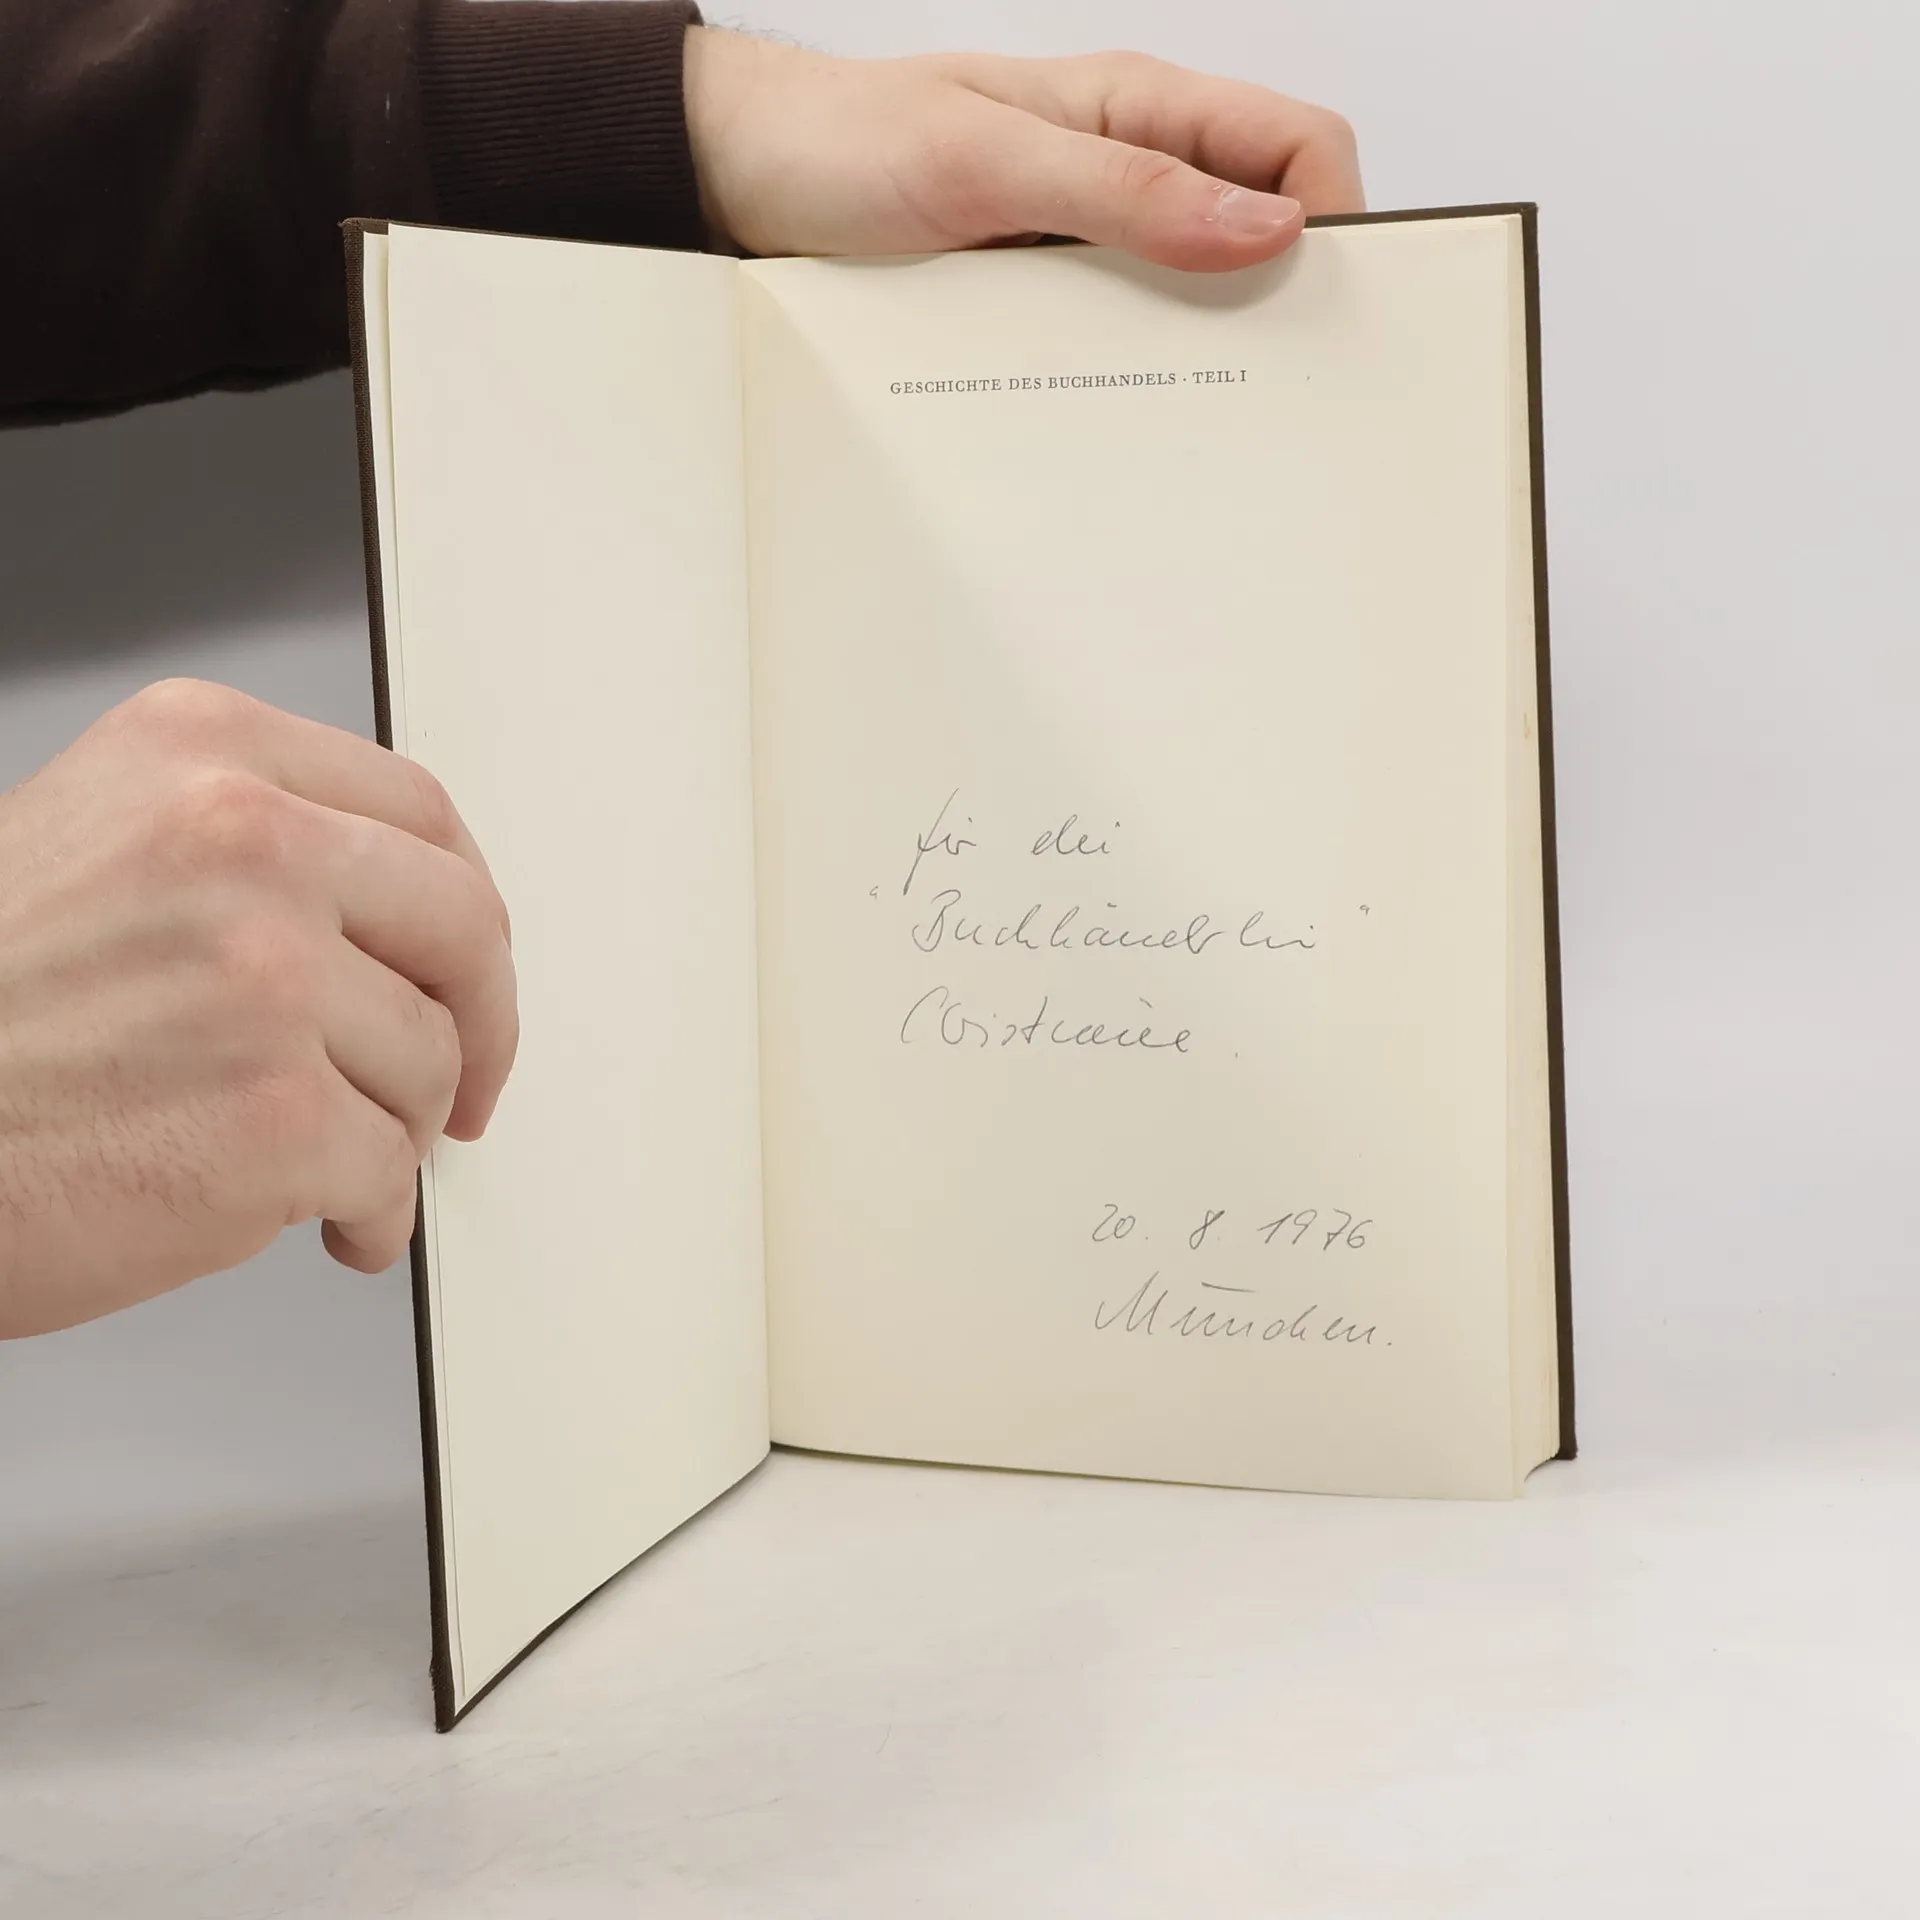 GESCHICHTE DES BUCHHANDELS · TEIL I
für die
"Buchhändlerin"
Christiane.
20. 8. 1976
München.